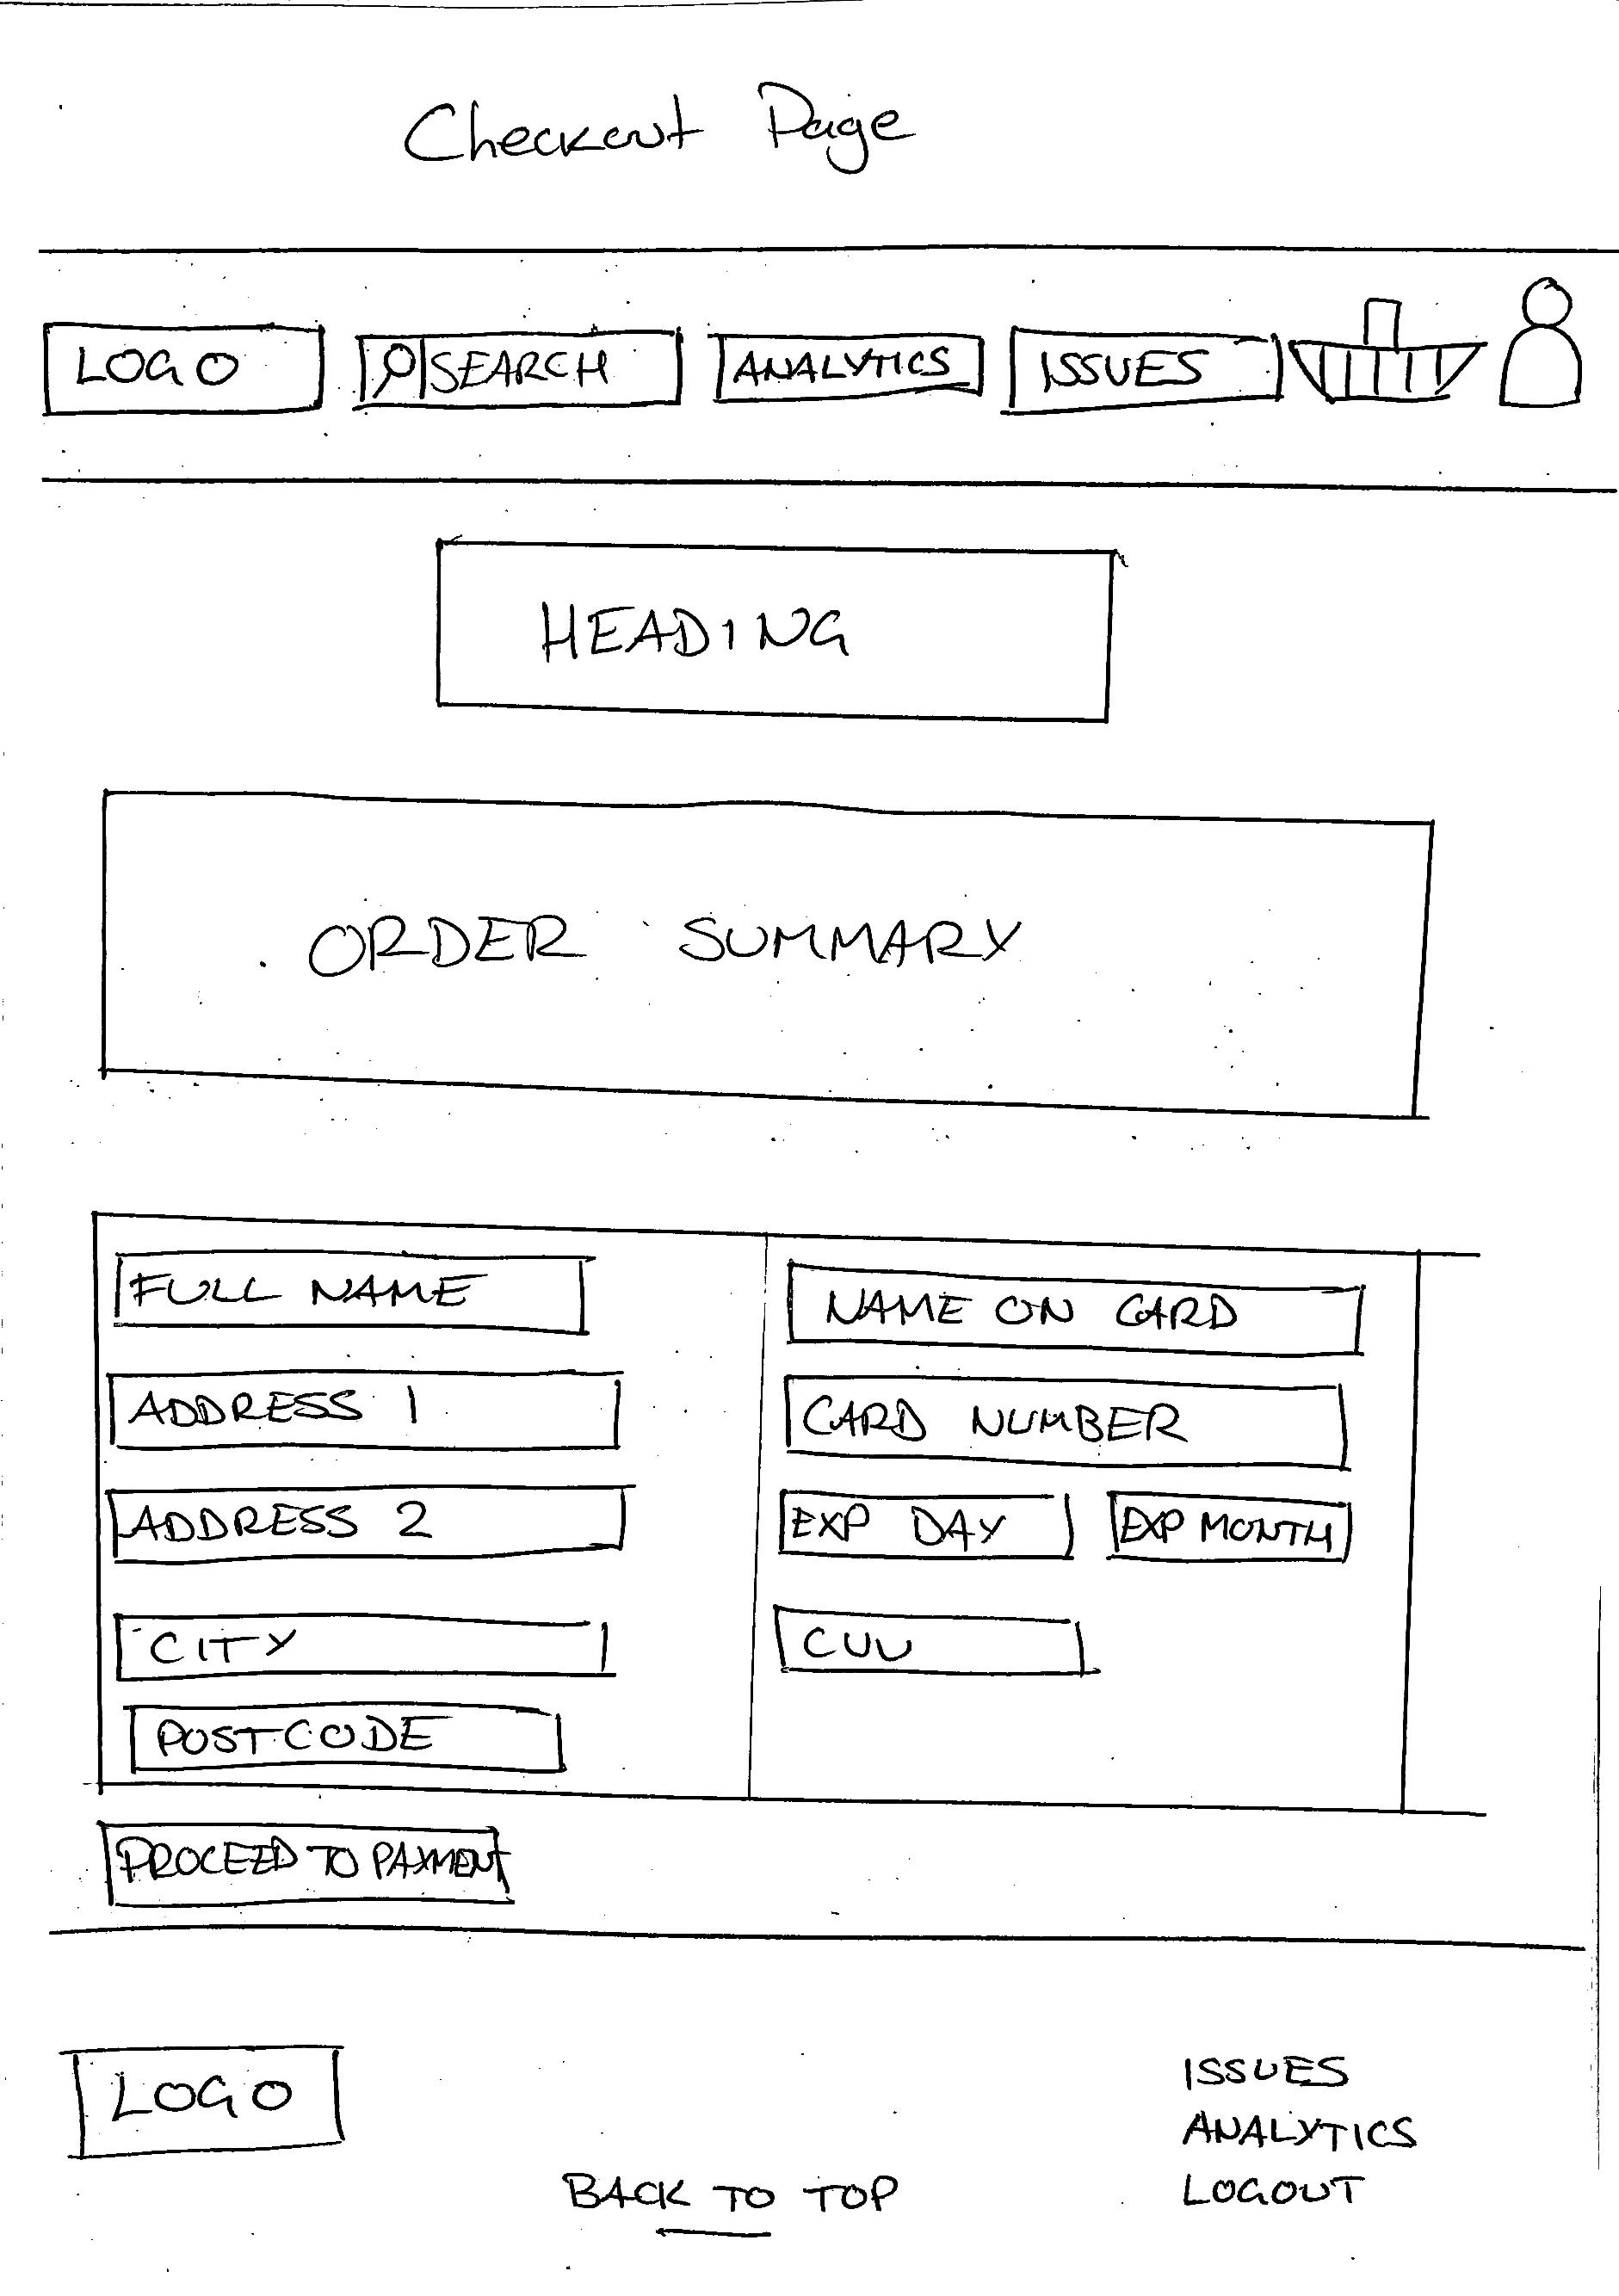 Checkout Page
LOGO SEARCH ANALYTICS ISSUES
HEADING
ORDER SUMMARY
FULL NAME
ADDRESS 1
ADDRESS 2
CITY
POSTCODE
NAME ON CARD
CARD NUMBER
EXP DAY EXP MONTH
CVV
PROCEED TO PAYMENT
LOGO
BACK TO TOP
ISSUES
ANALYTICS
LOGOUT